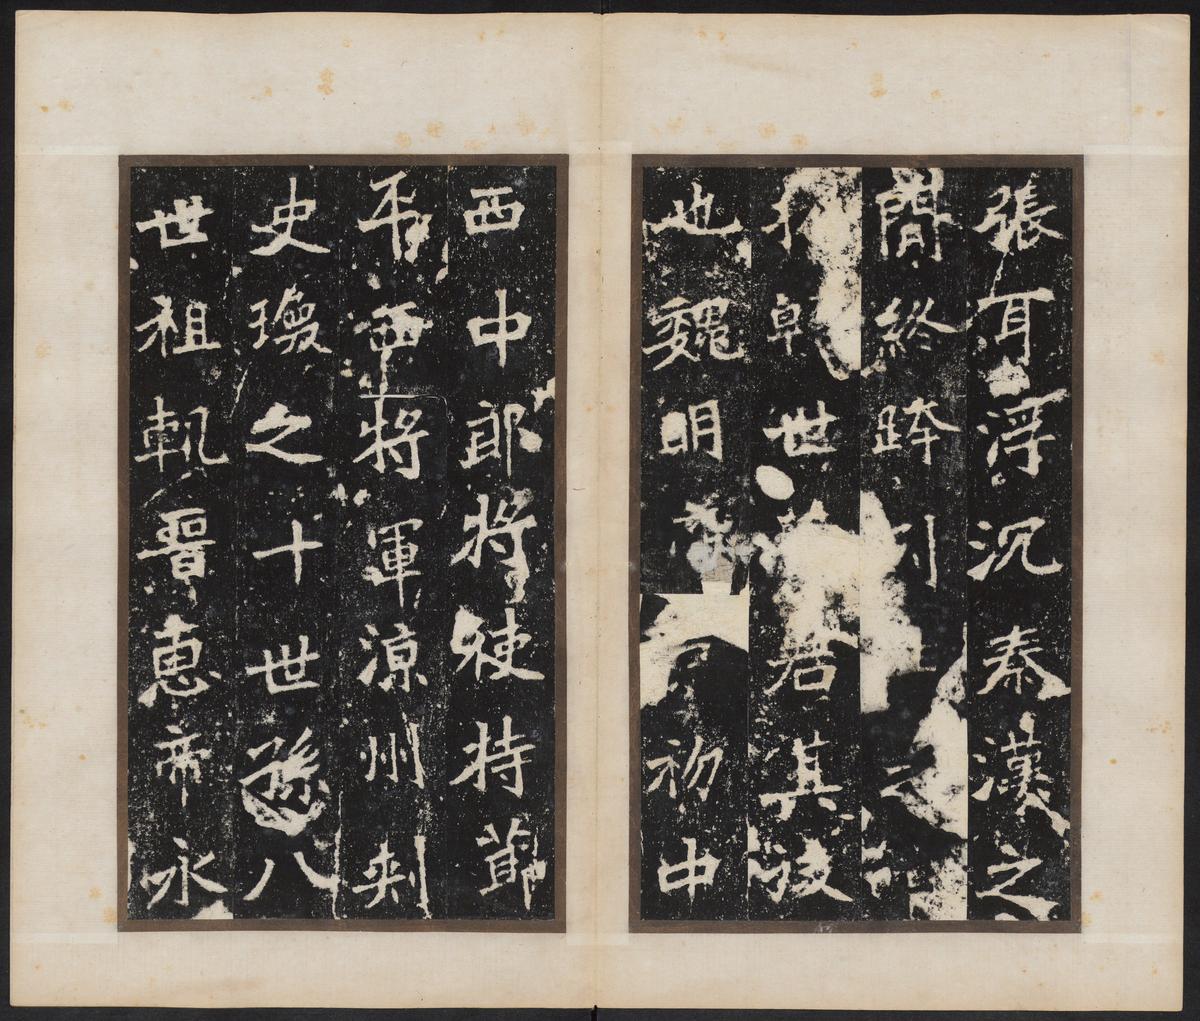 張耳浮沉秦漢之
閒終跨之
世君其後
也魏明初中
西中郎將使持節
平西將軍涼州刾
史瑍之十世孫八
世祖軌晉惠帝永